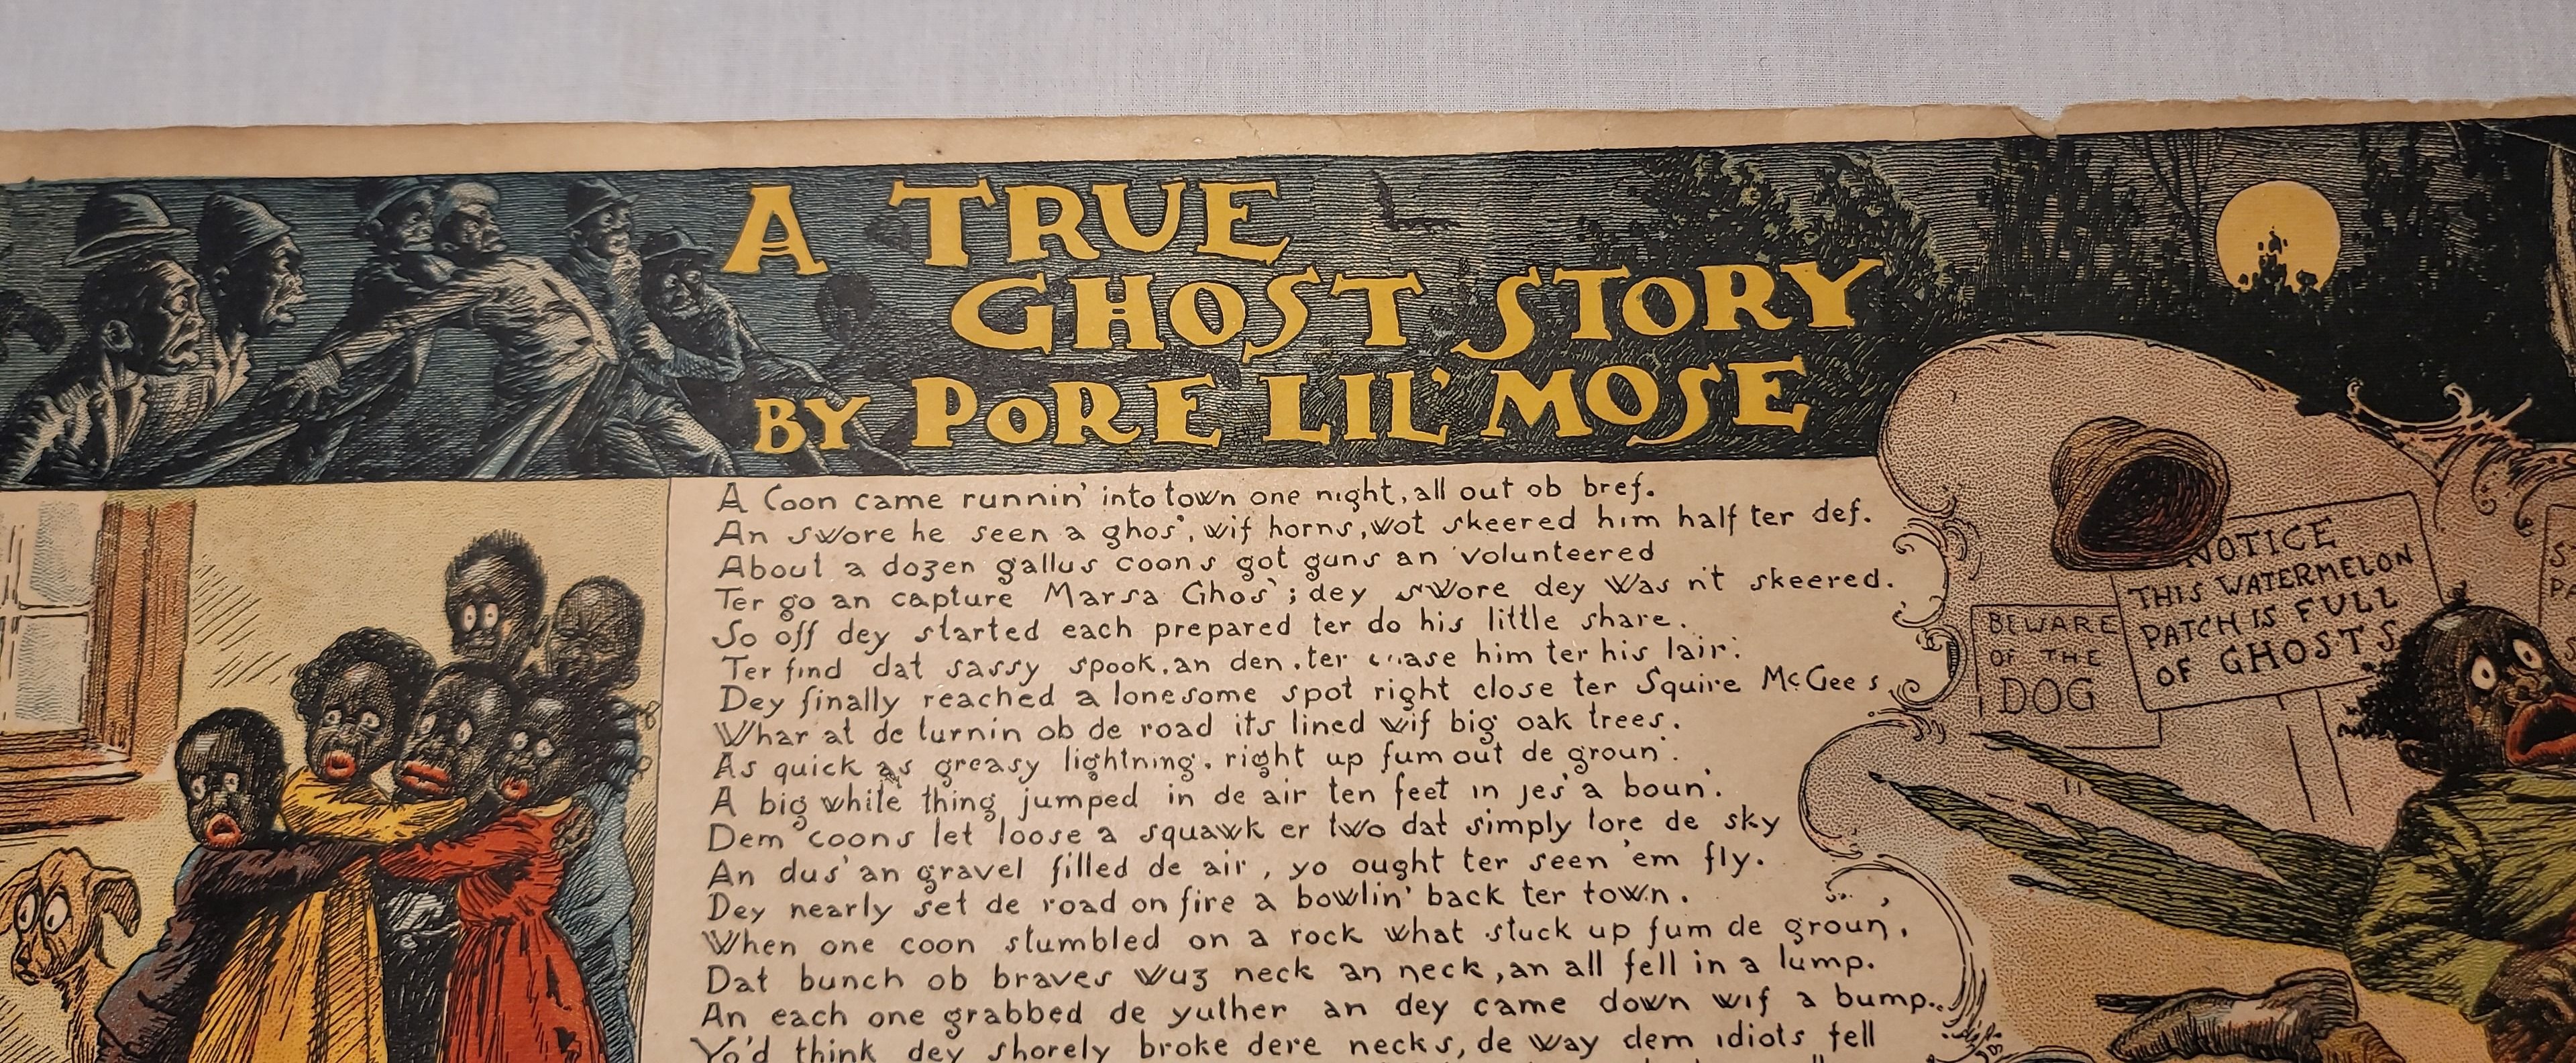 A TRUE
GHOST STORY
BY PORE LIL' MOSE
A Coon came runnin' into town one night, all out ob bref.
An swore he seen a ghos', wif horns, wot skeered him half ter def.
About a dozen gallus coons got guns an volunteered
Ter go an capture Marsa Ghos'; dey swore dey was n't skeered.
So off dey started each prepared ter do his little share.
Ter find dat sassy spook, an den, ter chase him ter his lair.
Dey finally reached a lonesome spot right close ter Squire McGees
Whar at de turnin ob de road its lined wif big oak trees.
As quick as greasy lightning, right up fum out de groun'.
A big white thing jumped in de air ten feet in jes' a boun'.
Dem coons let loose a squawk er two dat simply tore de sky
An dus' an gravel filled de air, yo ought ter seen 'em fly.
Dey nearly set de road on fire a bowlin' back ter town.
When one coon stumbled on a rock what stuck up fum de groun,
Dat bunch ob braves wuz neck an neck, an all fell in a lump.
An each one grabbed de yuther an dey came down wif a bump.
Yo'd think dey shorely broke dere necks, de way dem idiots fell
NOTICE
THIS WATERMELON
PATCH IS FULL
OF GHOSTS
BEWARE
OF THE
DOG